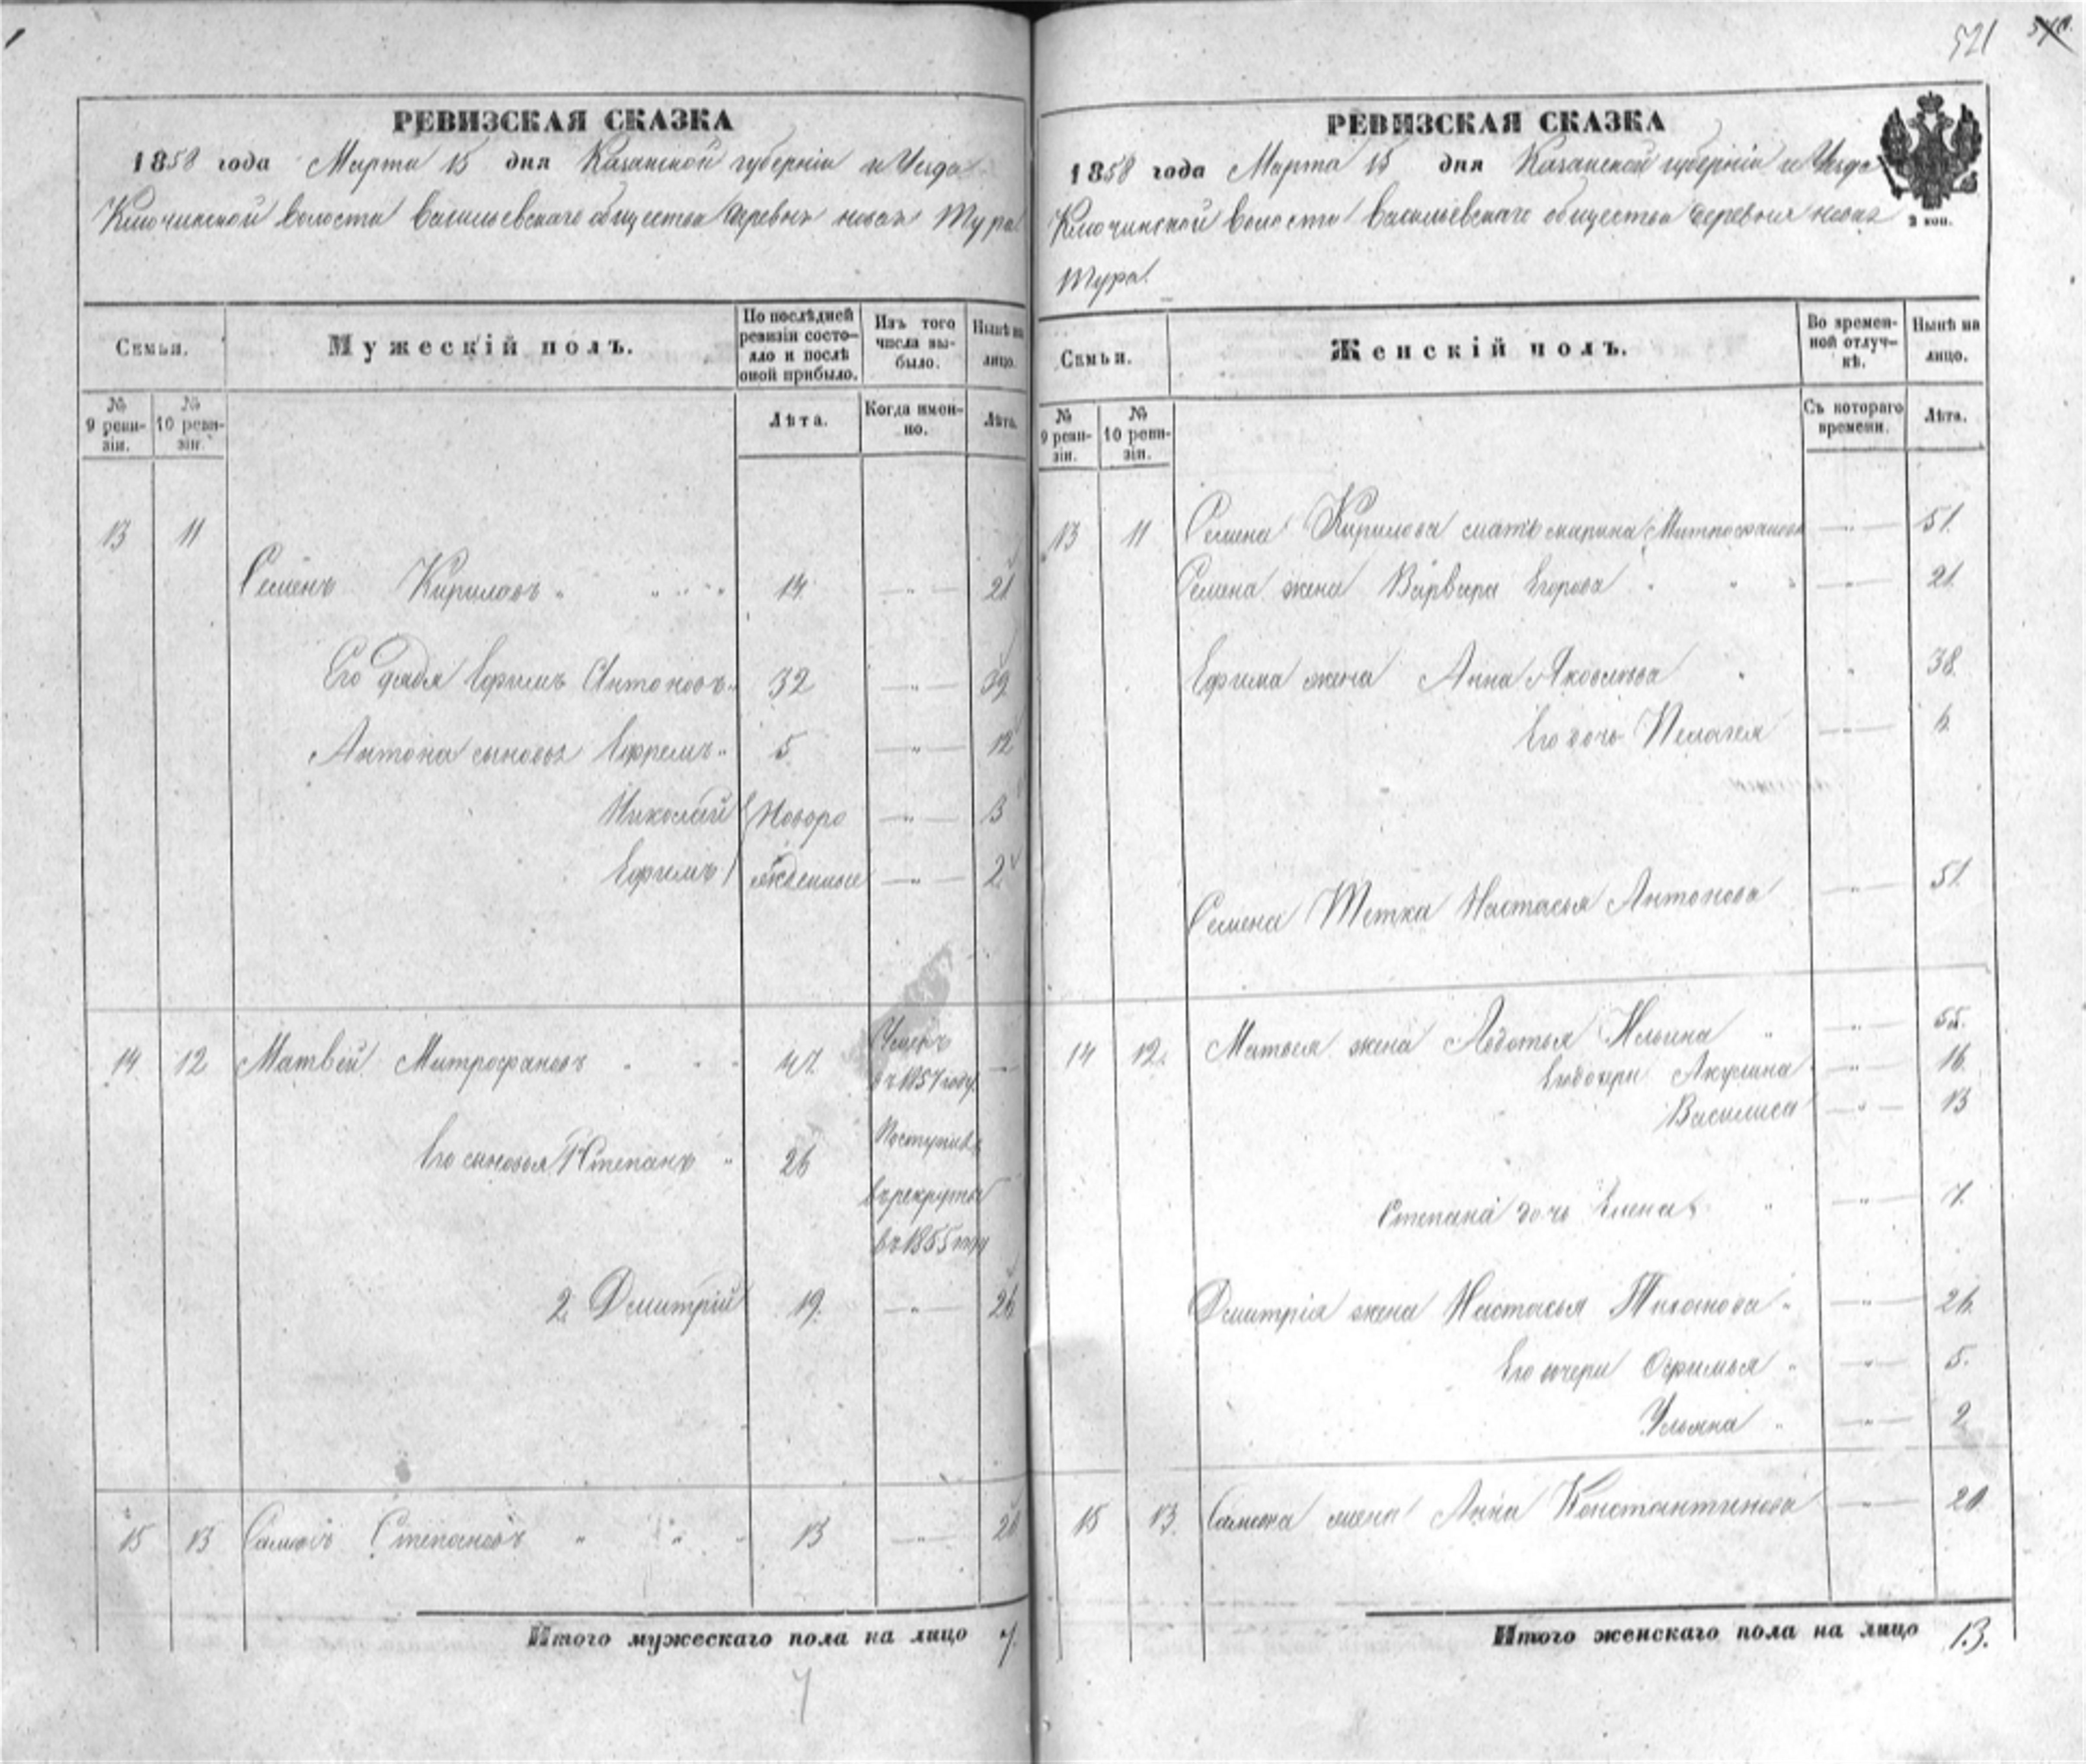 521
РЕВИЗСКАЯ СКАЗКА
1858 года Марта 15 дня Казанской губерніи и Уезда
Ключинской волости Васильевскаго общества деревни новая Тура
Семьи.
Мужескій полъ.
По послѣдней ревизіи состояло и послѣ оной прибыло.
Изъ того числа выбыло.
Нынѣ на лицо.
№ 9 ревизіи.
№ 10 ревизіи.
Лѣта.
Когда именно.
Лѣта.
13 11
Семенъ Кириловъ 14 21
Его дядя Ефимъ Антоновъ 32 39
Антона сыновья Ефремъ 5 12
Николай Новоро 3
Ефимъ жденные 2
14 12 Матвей Митрофановъ 47 Умеръ
въ 1857 году
Его сыновья 1 Степанъ 26 Поступилъ
въ рекруты
въ 1855 году
2 Дмитрій 19 26
15 13 Степановъ 13 20
Итого мужескаго пола на лицо 7.
7
РЕВИЗСКАЯ СКАЗКА
1858 года Марта 15 дня Казанской губерніи и Уезда
Ключинской волости Васильевскаго общества деревня новая
Тура
3 коп.
Семьи.
Женскій полъ.
Во временной отлучкѣ.
Нынѣ на лицо.
№ 9 ревизіи.
№ 10 ревизіи.
Съ котораго времени.
Лѣта.
13 11 Семена Кирилова мать марина Митрофанова 51
Семена жена Варвара Егорова 21
Ефима жена Анна Яковлева 38
Его дочь Пелагея 6
Семена Тетка Настасья Антонова 51
14 12 Матвея жена Авдотья Ильина 55
дочери Акулина 16
Василиса 13
Степана дочь Елена 7
Дмитрія жена Настасья Тихонова 26
Его дочери Офимья 5
Ульяна 2
15 13 жена Анна Константинова 20
Итого женскаго пола на лицо 13.